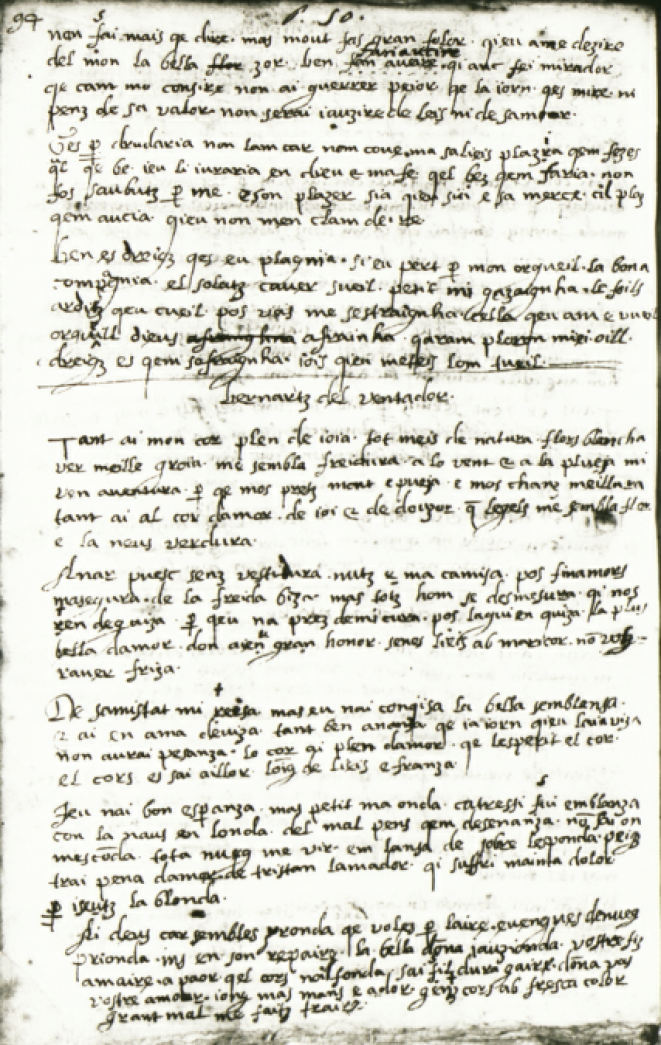 94
f. 50.
non fai mais qe dire. mas mout fas gran folor. qieu ame dezire
del mon la bella flor zor. ben qi anc fei mirador
qe cant mo consire non ai guerrer peior. he la iorn qes mire ni
penz de sa valor. non serai iauzire de leis ni de samor.
per drudaria non lam car nom cove. ma salieis plazia qem fezes
qal qe be. ieu li iuraria en dieu e ma fe. qel bez qem faria. non
fos saubutz per me. e son plazer sia qieu sui e sa merce. cil plaz
qem aucia. qieu non men clam de re.
ben es dreigz qes eu plagnia. si eu pert per mon orqueil. la bona
compagnia. el solatz caver sueil. petit mi gazaignha. le fols
arditz qeu cueil. pos vas me sestraignha. cella qeu am e vueil
orquill dieus afrainha. qaram ploron miei oill.
dreigz es qem sofraignha. iois qieu meteis lom tueil.
bernartz del ventador.
Tant ai mon cor plen de ioia. tot meis de natura. flors blancha
ver meille groia. me sembla freidura. a lo vent & a la plueja mi
ven aventura. per qe mos pretz mont e pueja. e mos chanz meillura
tant ai al cor damor. de ioi & de douzor. qe legels me sembla flor
e la neus verdura.
Anar puesc senz vestidura. nutz e ma camisa. pos finamors
masegura. de la freida biza. mas totz hom se desmesura. qi nos
ten de guiza. per qeu na prez demi cura. pos laqui en quiza. la plus
bella damor. don aten gran honor. senes lieis ab maricor. no volh
raver friza.
De samistat mi reisa. mas eu nai conqisa la bella semblensa.
& ai en ama deviza. tant ben ananza qe ia iorn qieu laia vista
non aurai pesanza. lo cor qi plen damor. qe lesperit el cor.
el cors es sai aillor. loing de lieis e franza.
Ieu nai bon esperanza. mas petit ma onda. catressi sui emblanza
con la naus en londa. del mal pens qem desenanza. non sai on
mesconda. tota nueg me vir. em lansa de sobre lesponda. peig
trai pena damor. de tristan lamador. qi suffri mainta dolor
per iseutz la blonda.
Ai deus car sembles yronda qe voles per laire. e vengues de nueg
prionda. ins en son repaire. la bella dona iauzionda. vostre fis
amaire. a paor qel cors nolfonda, sai fitz dura gaire. dona vas
vostre amor. iong mas mans e ador. genz cors ab fresca color
grant mal me faitz traire.